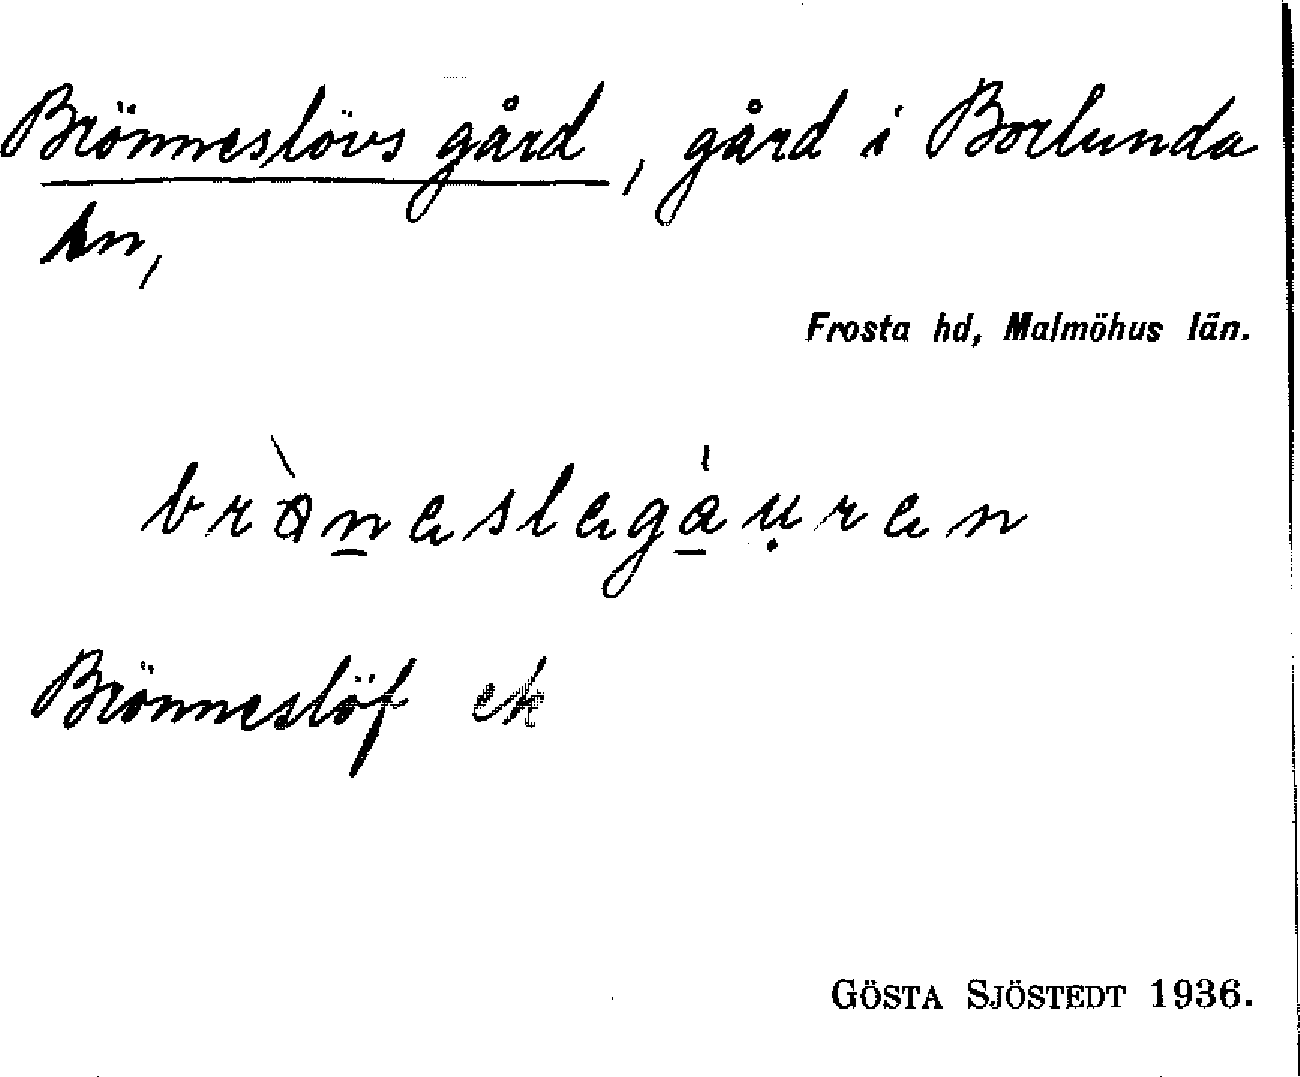 Brönneslövs gård, gård i Borlunda
sn,
Frosta hd, Malmöhus län.
Brönneslöf ek
GÖSTA SJÖSTEDT 1936.